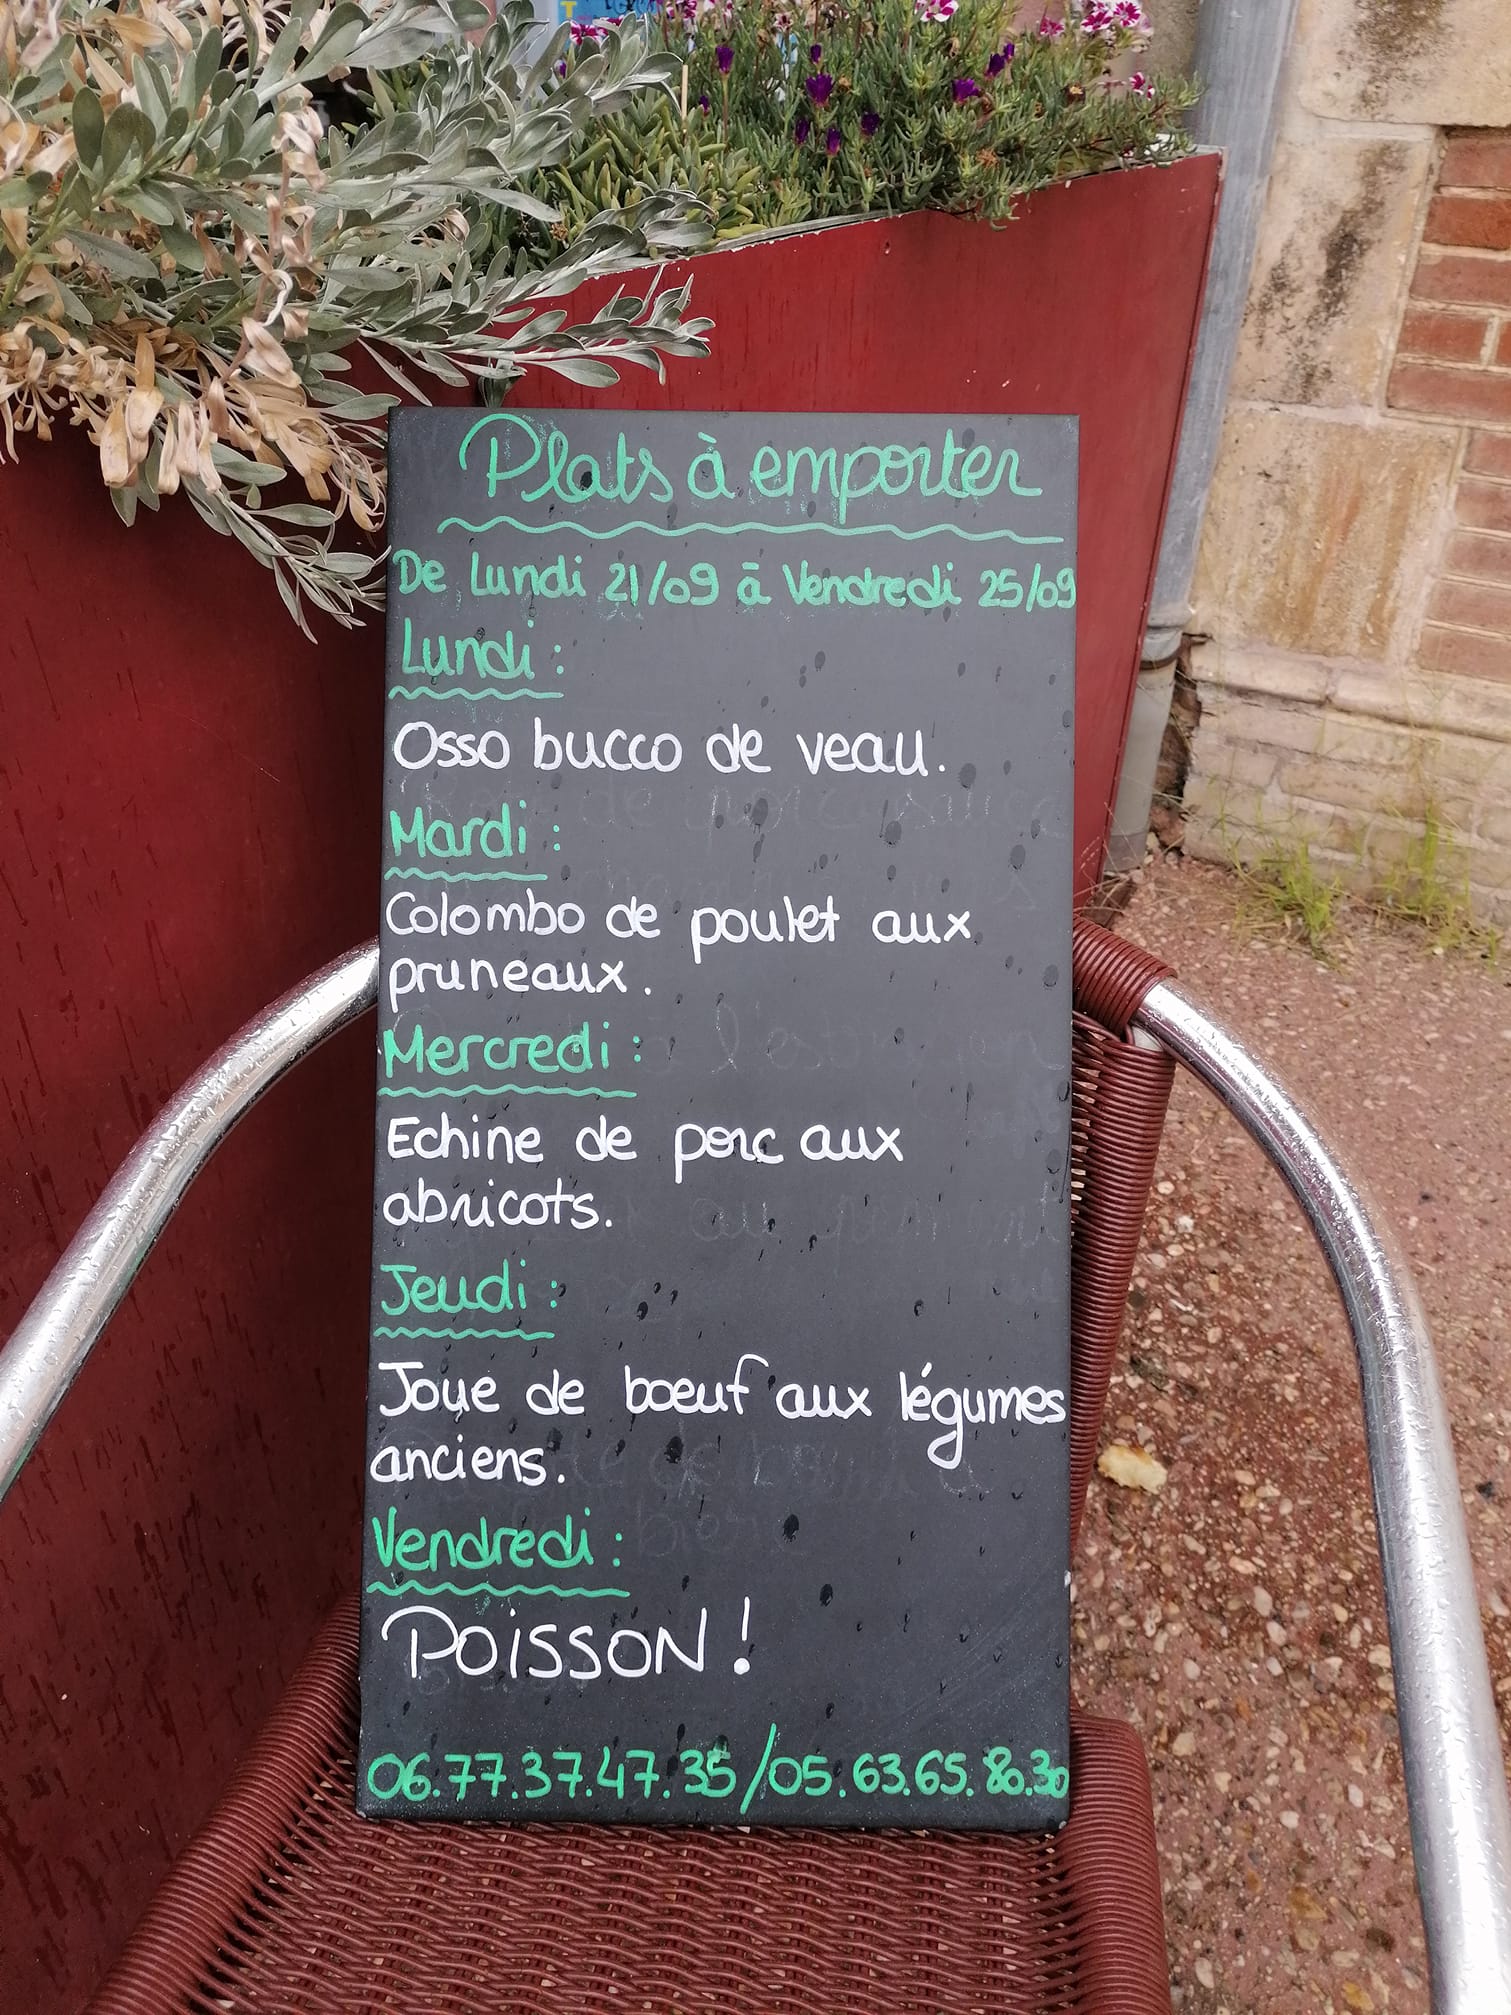 Plats à emporter
De Lundi 21/09 à Vendredi 25/09
Lundi :
Osso bucco de veau.
Mardi :
Colombo de poulet aux
pruneaux.
Mercredi :
Echine de porc aux
abricots.
Jeudi :
Joue de boeuf aux légumes
anciens.
Vendredi :
POISSON !
06.77.37.47.35/05.63.65.80.30